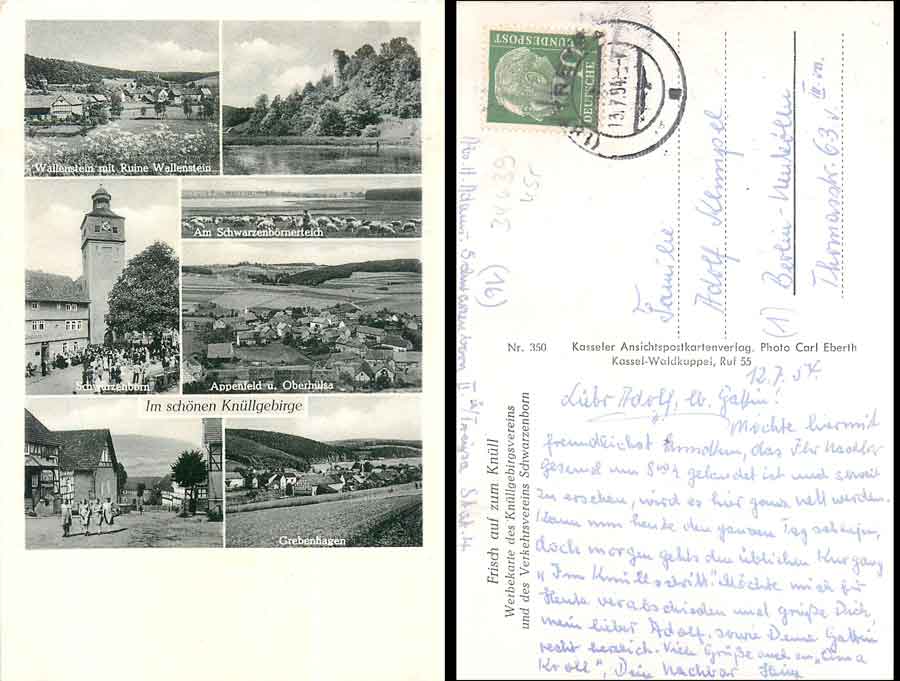 Wallenstein mit Ruine Wallenstein
Am Schwarzenbörnerteich
Schwarzenborn
Appenfeld u. Oberhülsa
Im schönen Knüllgebirge
Grebenhagen
DEUTSCHE
BUNDESPOST
13.7.54
34639
usr
(16)
Familie
Adolf
(1) Berlin-Neukölln
Thomasstr. 63
Nr. 350 Kasseler Ansichtspostkartenverlag, Photo Carl Eberth
Kassel-Waldkappel, Ruf 55
Frisch auf zum Knüll
Werbekarte des Knüllgebirgsvereins
und des Verkehrsvereins Schwarzenborn
12.7.54
Liebr Adolf, w. Gattin!
Möchte hiermit
freundlichst das Ihr Nachbar
gesund um gelandet ist und soweit
zu ersehen, wird es hier ganz nett werden.
Kann nun heute den ganzen Tag
doch morgen gehts den üblichen Kurgang
„Im Knüllschritt" Möchte mich für
Heute verabschieden und grüße Dich,
mein lieber Adolf, sowie Deine Gattin
recht herzlich. Viele Grüße auch an „Oma
Kroll", Dein Nachbar Heinz